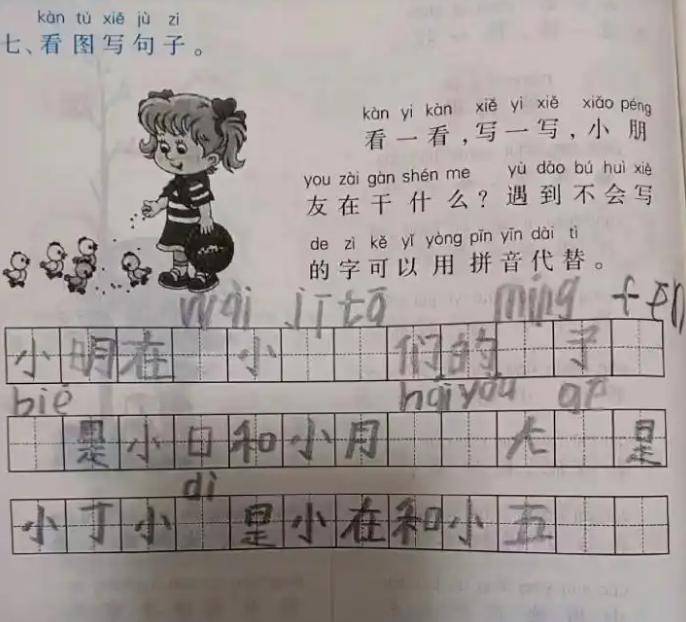 kàn tú xiě jù zi
七、看图写句子。
kàn yi kàn xiě yi xiě xiǎo péng
看一看,写一写,小朋
you zài gàn shén me yù dào bú huì xiě
友在干什么?遇到不会写
de zì kě yǐ yòng pīn yīn dài tì
的字可以用拼音代替。
wài jī tā míng fēn
小明在 小 们的 子
bié hái yǒu
是小日和小月 大 是
dì
小丁小 是小在和小五